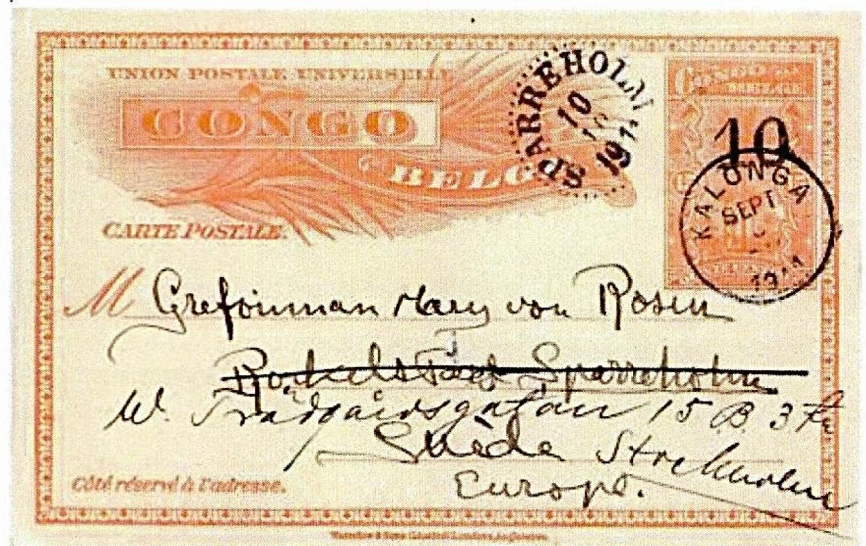 UNION POSTALE UNIVERSELLE
CONGO
BELGE
CARTE POSTALE.
SPARREHOLM
10
19
CONGO
BELGE
10
KALONGA
SEPT
M Grefvinnan Mary von Rosen
Rockelstad Sparreholm
W. Trädgårdsgatan 15 B 3 tr
Suède Stockholm
Europe.
Côté réservé à l'adresse.
Waterlow & Sons